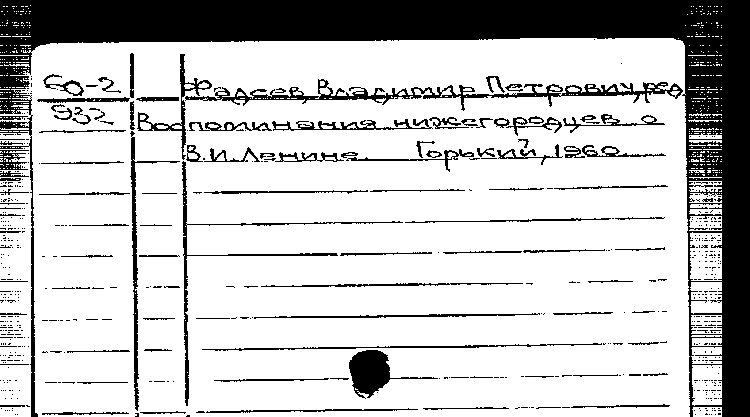 60-2 Фадеев, Владимир Петрович, ред.
932 Воспоминания нижегородцев о
В.И. Ленине. Горький, 1960.